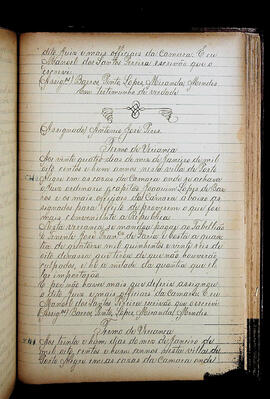 dito Juiz e mais officiaes da Camara. E eu
Manoel dos Santos Pereira escrivão que o
escrevi
(Assigdos) Barros, Pinto, Lopes, Miranda, Mendes.
Em testimunho de verdade
Assignado Antonio José Pires.
Termo de Veriança
Aos vinte quatro dias do mez de Janeiro de mil
oito centos e hum annos nesta villa de Porto
Alegre em as cazas da Camara onde se achava
o Juiz ordinario o capitão Joaquim Lopes de Bar-
ros e os mais officiaes da Camara abaixo as-
signados para effeito de proverem o que for
mais conveniente a Republica
Nesta veriança se mandou pagar ao Tabellião
o Tenente José Franco de Faria a quan-
tia de quinhentos vinte reis de
oito devassas que tirou de que não houverão
culpados, e hé a metade da quantia que el-
las importarão
E por não haver mais que deferir assignou
o dito Juiz e mais officiaes da Camara E eu
Manoel dos Santos Pereira escrivão que o escrevi
(Assigdos) Barros, Pinto, Lopes, Miranda, Mendes.
Termo de Veriança
Aos trinta e hum dias do mez de Janeiro de
mil oito centos e hum annos nesta villa de
Porto Alegre em as cazas da Camara onde